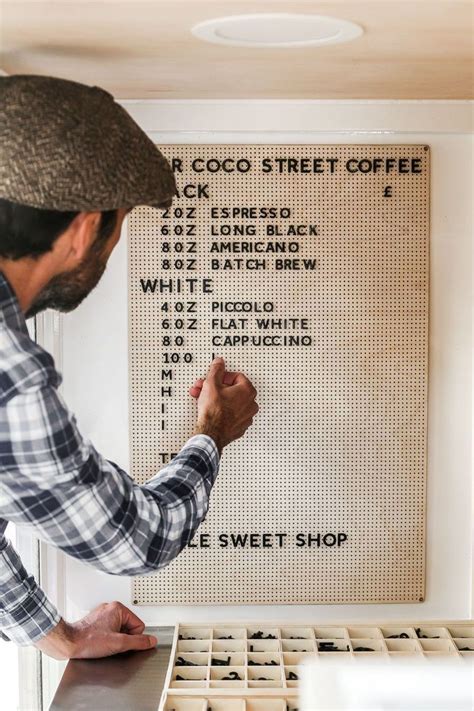 R COCO STREET COFFEE
ACK £
2OZ ESPRESSO
6OZ LONG BLACK
8OZ AMERICANO
8OZ BATCH BREW
WHITE
4OZ PICCOLO
6OZ FLAT WHITE
8O CAPPUCCINO
10O
M
H
I
I
T
LE SWEET SHOP